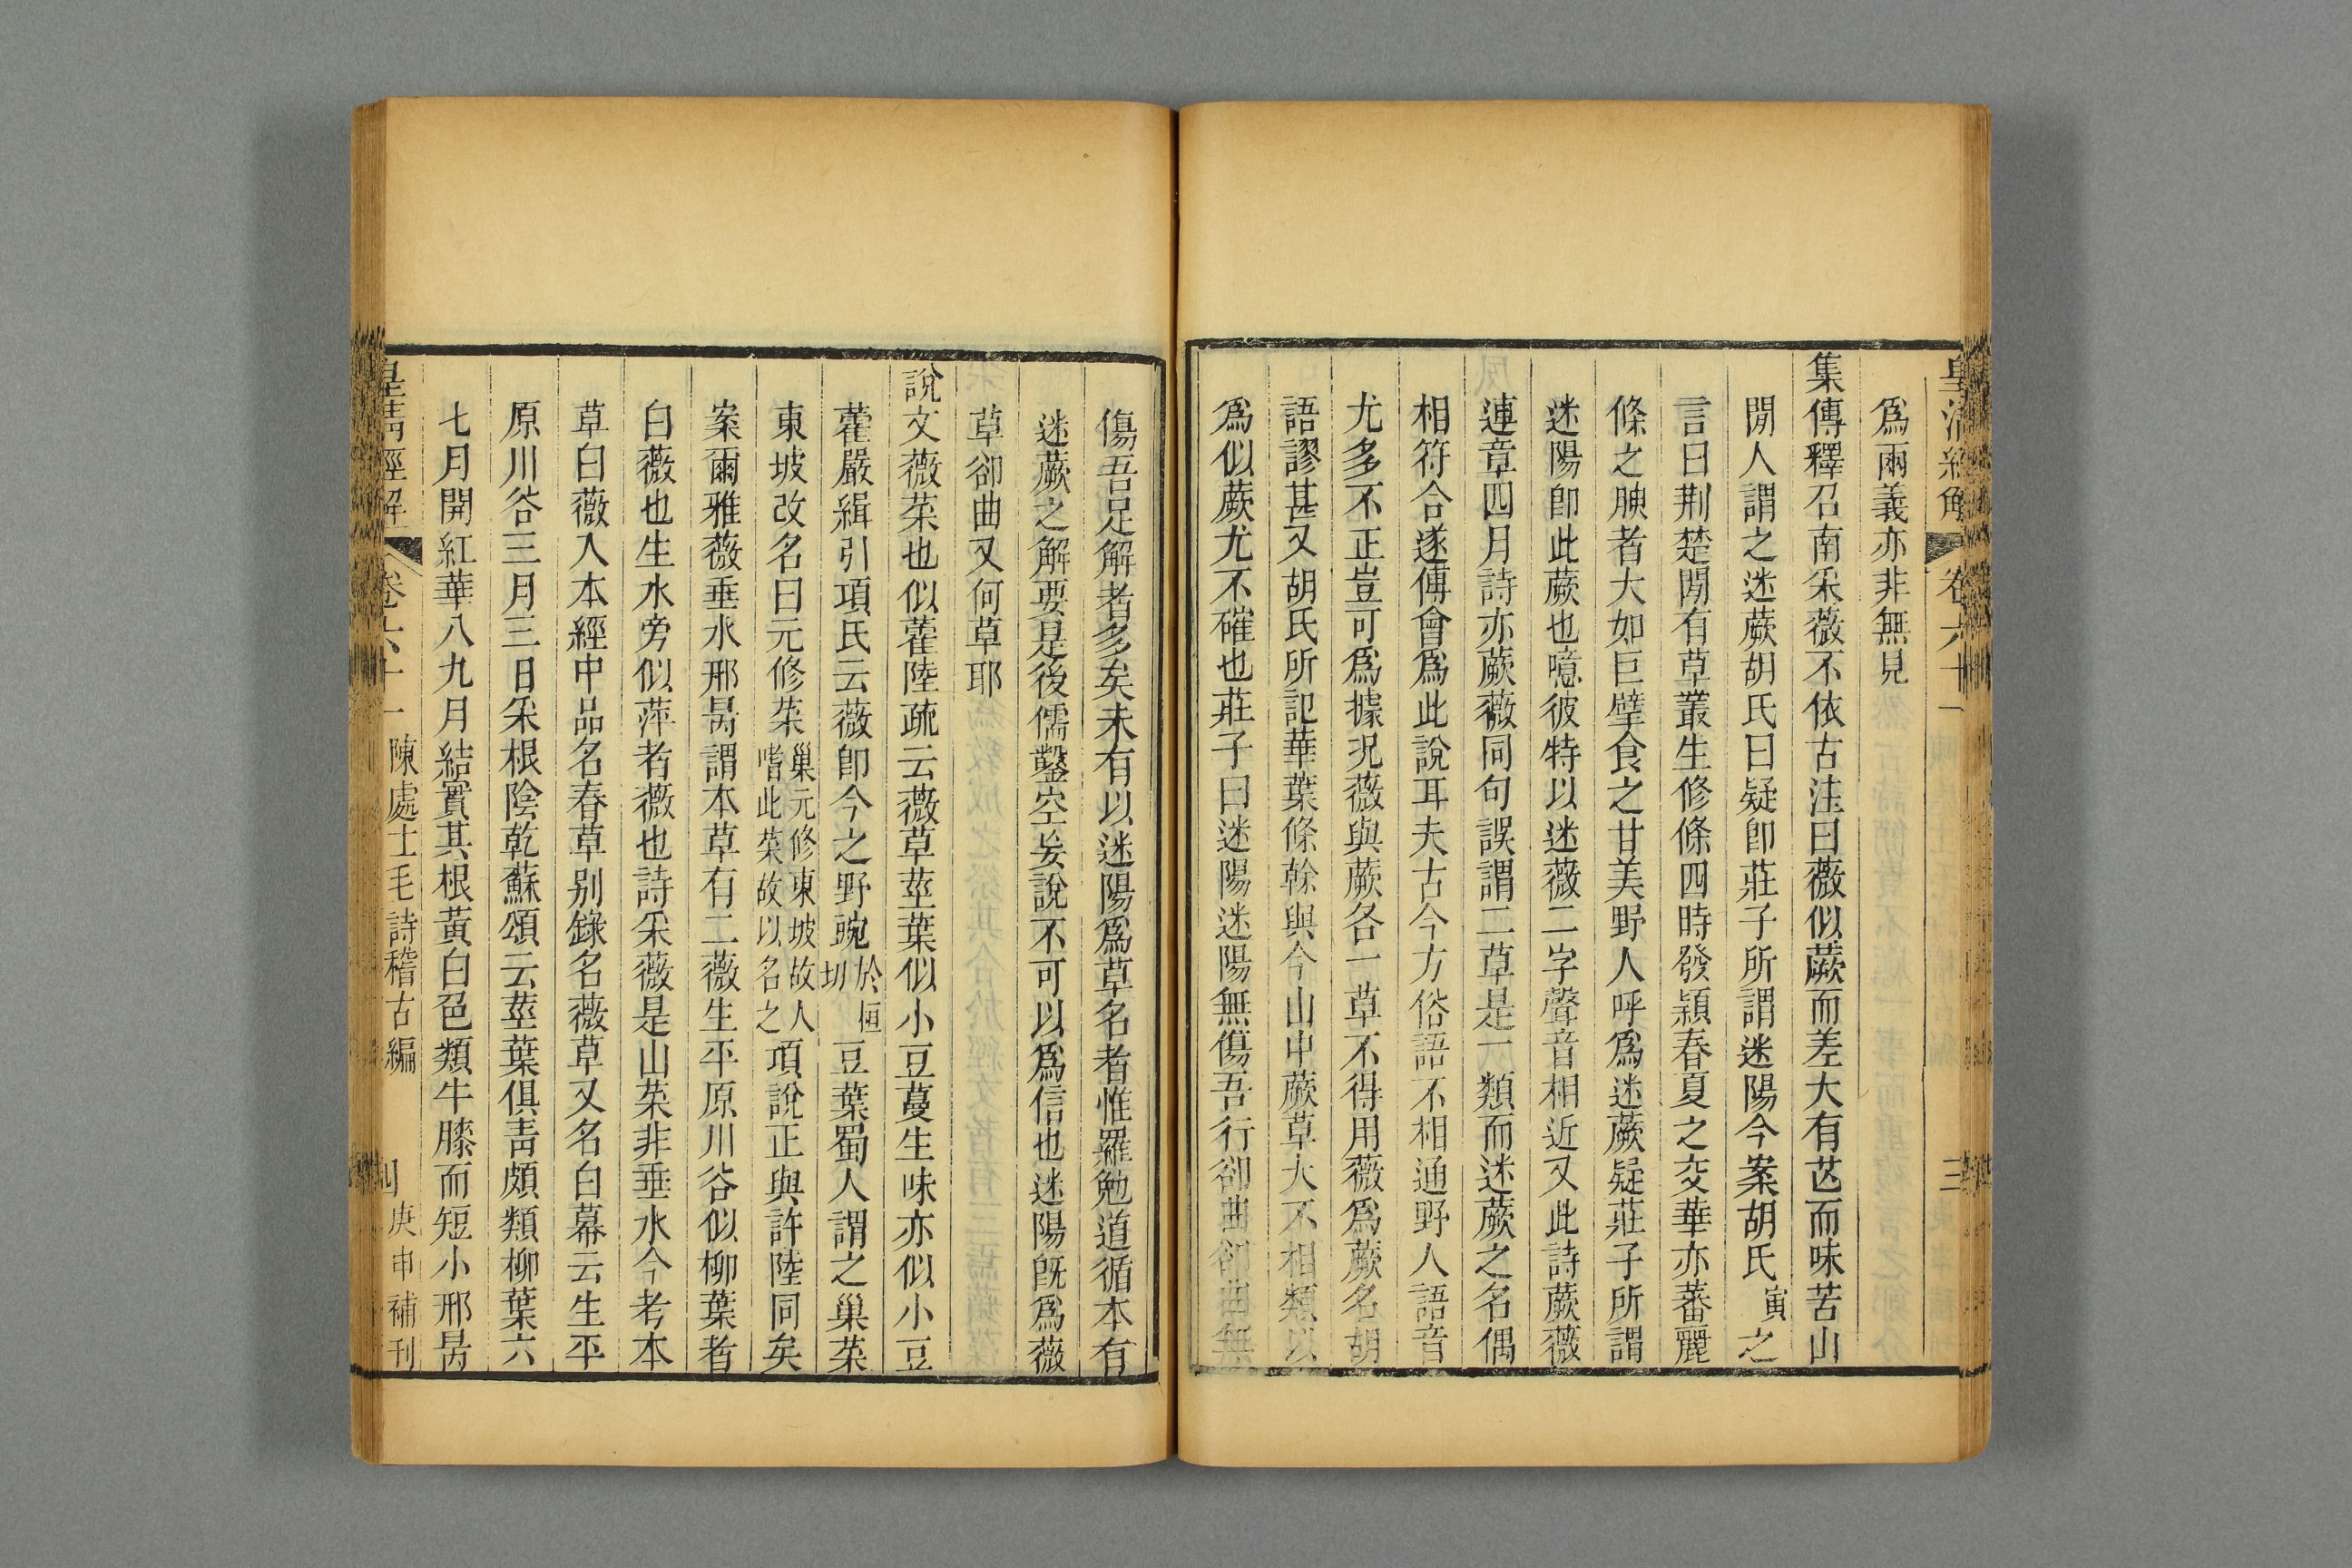 皇清經解 卷六十一 三
為兩義亦非無見
集傳釋召南采薇不依古注曰薇似蕨而差大有芒而味苦山
閒人謂之迷蕨胡氏曰疑卽莊子所謂迷陽今案胡氏寅之
言曰荆楚閒有草叢生修條四時發穎春夏之交華亦蕃麗
條之腴者大如巨擘食之甘美野人呼爲迷蕨疑莊子所謂
迷陽卽此蕨也噫彼特以迷薇二字聲音相近又此詩蕨薇
連章四月詩亦蕨薇同句誤謂二草是一類而迷蕨之名偶
相符合遂傅會爲此說耳夫古今方俗語不相通野人語音
尤多不正豈可爲據況薇與蕨各一草不得用薇爲蕨名胡
語謬甚又胡氏所記華葉條榦與今山中蕨草大不相類以
爲似蕨尤不確也莊子曰迷陽迷陽無傷吾行卻曲卻曲無
傷吾足解者多矣未有以迷陽爲草名者惟羅勉道循本有
迷蕨之解要是後儒鑿空妄說不可以爲信也迷陽旣爲薇
草卻曲又何草耶
說文薇菜也似藿陸疏云薇草莖葉似小豆蔓生味亦似小豆
藿嚴緝引項氏云薇卽今之野豌於恒切豆葉蜀人謂之巢菜
東坡改名曰元修菜巢元修東坡故人嗜此菜故以名之項說正與許陸同矣
案爾雅薇垂水邢昺謂本草有二薇生平原川谷似柳葉者
白薇也生水旁似萍者薇也詩采薇是山菜非垂水今考本
草白薇入本經中品名春草別錄名薇草又名白幕云生平
原川谷三月三日采根陰乾蘇頌云莖葉俱靑頗類柳葉六
七月開紅華八九月結實其根黃白色類牛膝而短小邢昺
皇清經解 卷六十一 陳處士毛詩稽古編 四 庚申補刊